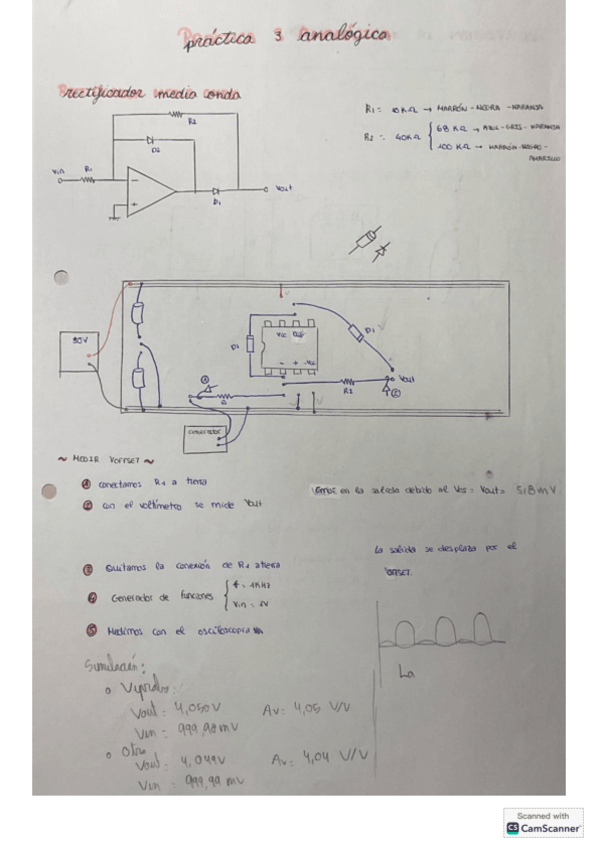 práctica 3 analógica
rectificador media onda
R1 = 10KΩ → MARRÓN - NEGRA - NARANJA
R2 = 40KΩ { 68 KΩ → AZUL - GRIS - NARANJA
100 KΩ → MARRÓN - NEGRO -
AMARILLO
R2
D2
Vin
R1
-
+
D1
Vout
30V
Vcc OUT
D2
D1
- + -Vcc
R2
Vout
GENERADOR
~ MEDIR VOFFSET ~
① conectamos R1 a tierra
② con el voltímetro se mide Vout
en la salida debido al Vos = Vout = 5,8 mV
③ Quitamos la conexión de R1 a tierra
④ Generador de funciones { f = 1KHz
Vin = 1V
⑤ Medimos con el osciloscopio
La salida se desplaza por el
OFFSET.
La
Simulación:
Vout = 4,050V
Av = 4,05 V/V
Vin = 999,98 mV
Otro
Vout = 4,049V
Av = 4,04 V/V
Vin = 999,99 mV
Scanned with
CS CamScanner